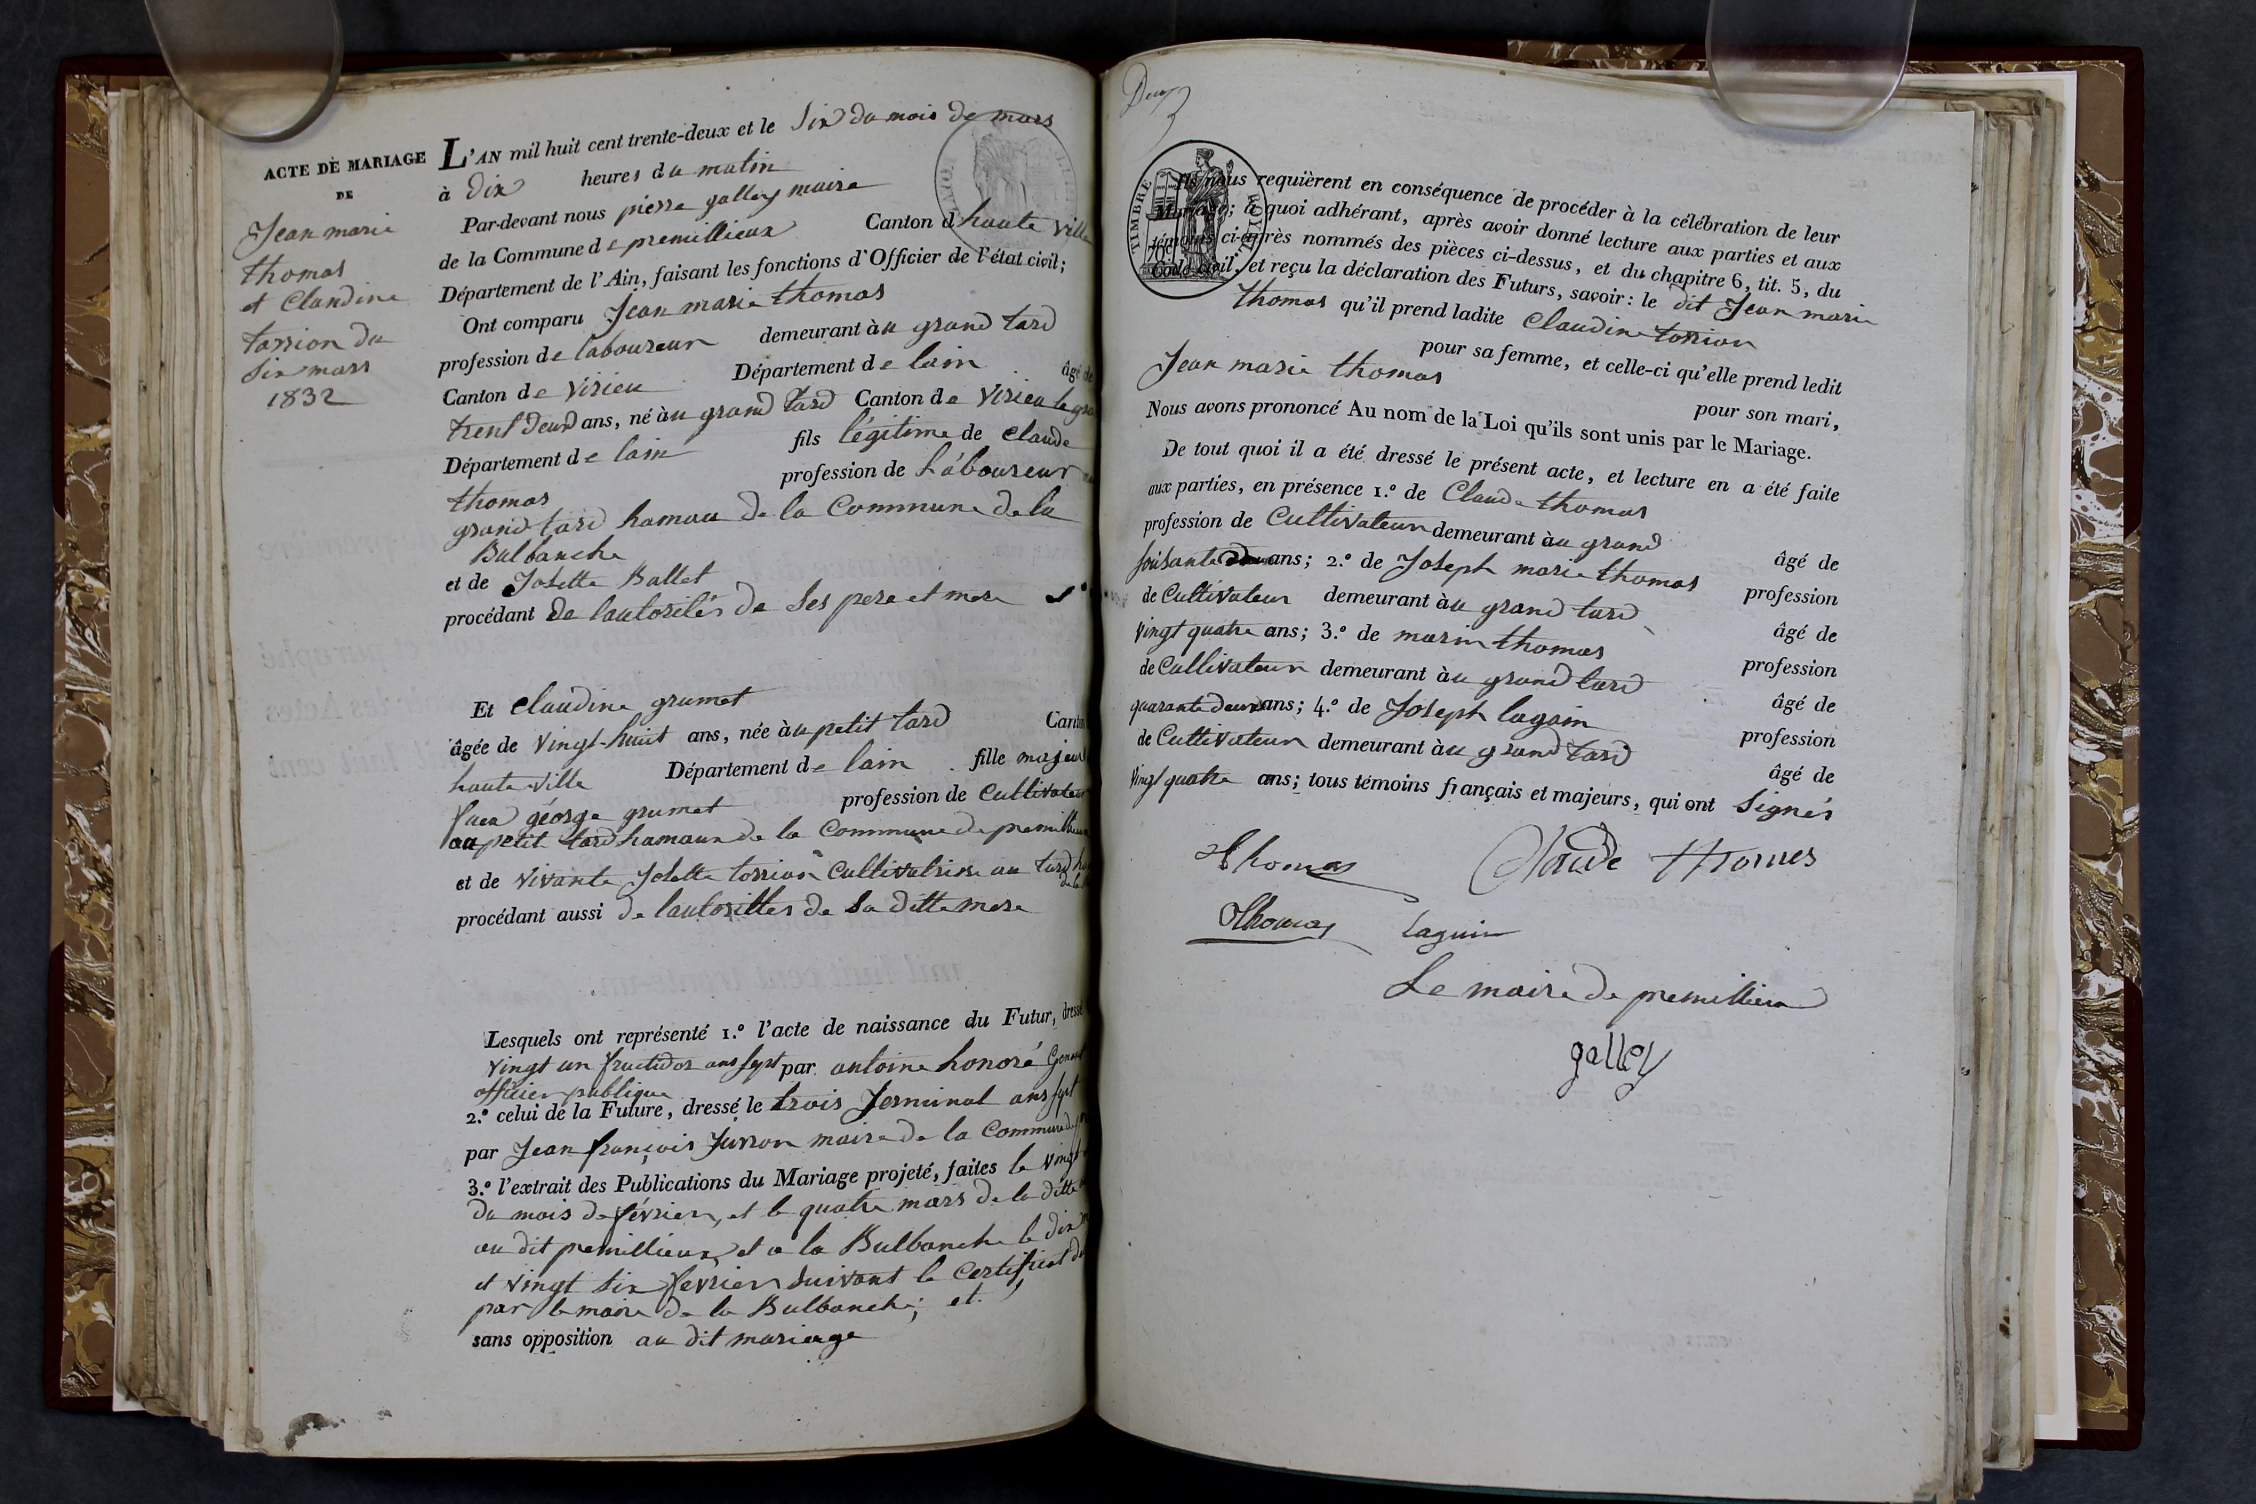 ACTE DE MARIAGE
DE
Jean marie
thomas
et Claudine
torrion du
six mars
1832
L'AN mil huit cent trente-deux et le Six du mois de mars
à dix heures du matin
Par-devant nous pierre galley maire
de la Commune de premillieux Canton d haute ville
Département de l'Ain, faisant les fonctions d'Officier de l'état civil;
Ont comparu Jean marie thomas
profession de laboureur demeurant àu grand tard
Canton de Virieu Département de lain âgé de
trent deux ans, né àu grand tard Canton de Virieu le
Département de lain fils légitime de Claude
thomas profession de Láboureur
grand tard hamau de la Commune de la
Bulbanche
et de Josette Ballet
procédant de lautorités de Ses pere et mere
Et Claudine grumet
âgée de Vingt-huit ans, née àu petit tard
haute ville Département de lain fille
feu géorge grumet profession de
au petit tard hamaux de la Commune de
et de vivante Josette torrion Cultivatrise au tard
procédant aussi de lautorittes de Sa ditte mere
Lesquels ont représenté 1.º l'acte de naissance du Futur, dressé
vingt un fructidor ans sept par antoine honoré
officier publique
2.º celui de la Future, dressé le trois Jerminal ans sept
par Jean françois Jurron maire de la Commune
3.º l'extrait des Publications du Mariage projeté, faites le
du mois de février, et le quatre mars de la ditte
au dit premillieux et a la Bulbanche le dix
et vingt six février Suivant le Certificat
par le maire de la Bulbanche; et
sans opposition au dit mariage
TIMBRE ROYAL
Ils nous requièrent en conséquence de procéder à la célébration de leur
Mariage; à quoi adhérant, après avoir donné lecture aux parties et aux
témoins ci-après nommés des pièces ci-dessus, et du chapitre 6, tit. 5, du
Code civil, et reçu la déclaration des Futurs, savoir: le dit Jean marie
thomas qu'il prend ladite Claudine torrion
pour sa femme, et celle-ci qu'elle prend ledit
Jean marie thomas pour son mari,
Nous avons prononcé Au nom de la Loi qu'ils sont unis par le Mariage.
De tout quoi il a été dressé le présent acte, et lecture en a été faite
aux parties, en présence 1.º de Claude thomas
profession de Cultivateur demeurant àu grand âgé de
soisante ans; 2.º de Joseph marie thomas profession
de Cultivateur demeurant àu grand tard âgé de
vingt quatre ans; 3.º de marin thomas profession
de Cultivateur demeurant àu grand tard âgé de
quarante deux ans; 4.º de Joseph lagoin profession
de Cultivateur demeurant àu grand tard âgé de
vingt quatre ans; tous témoins français et majeurs, qui ont Signés
Thomas Claude Thomes
Thomas Laguin
Le maire de premillieu
galley